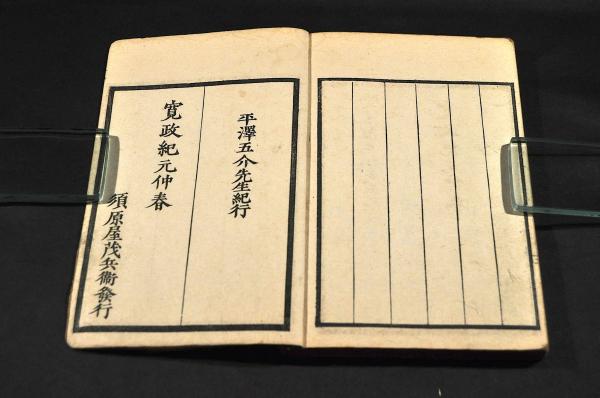 平澤五介先生紀行
寛政紀元仲春
須原屋茂兵衞發行